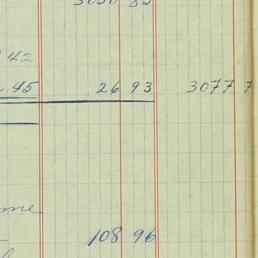 3050 83
42
.45 26 93 3077 7
me
108 96